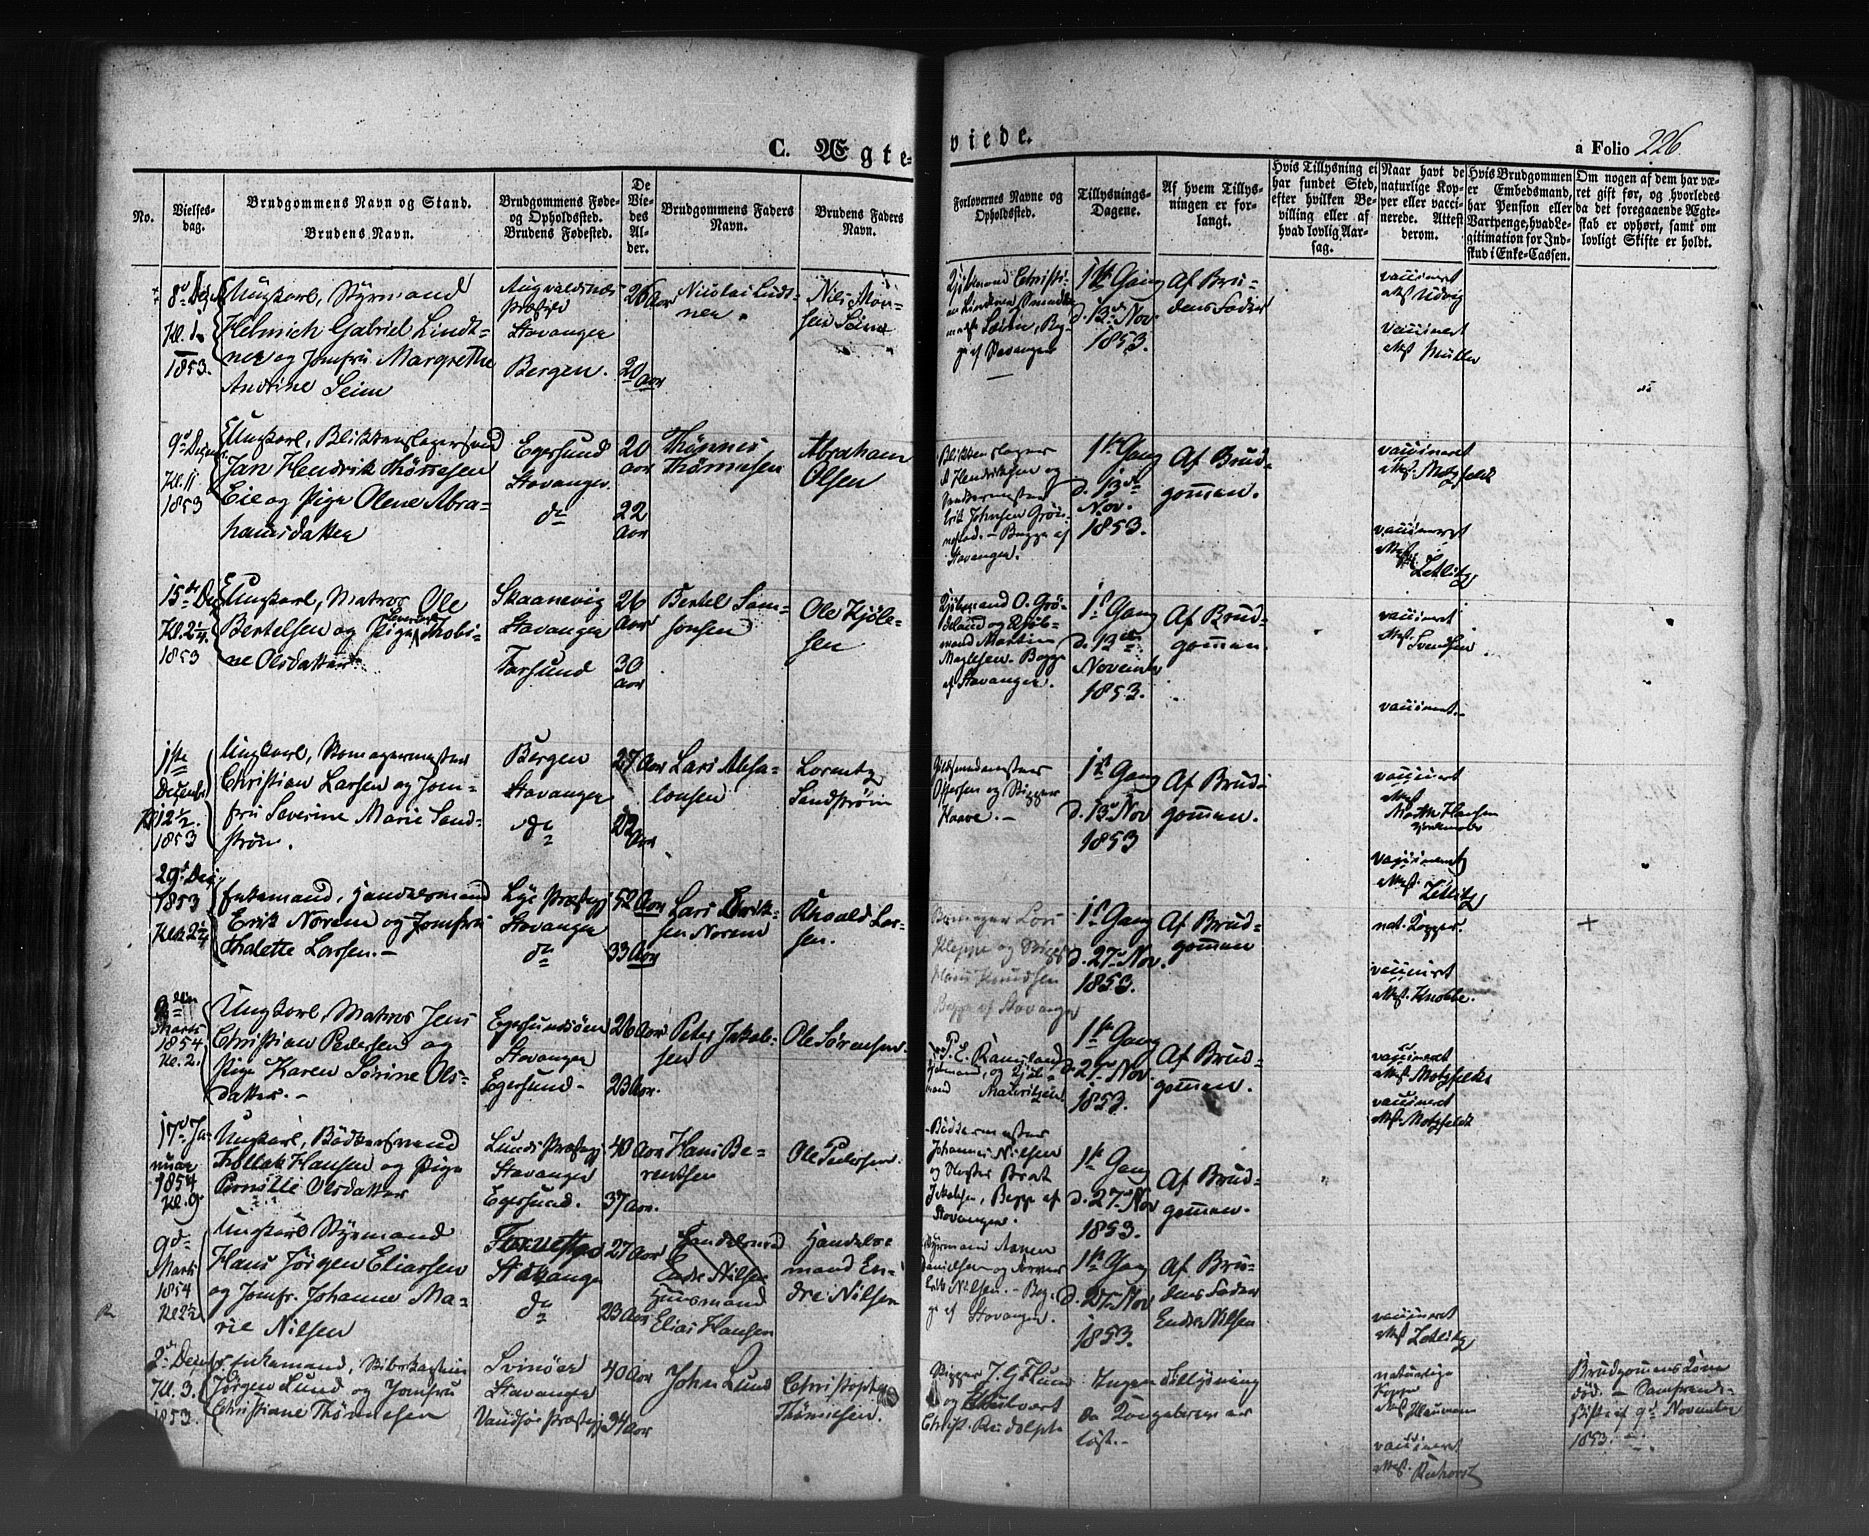 C. Ægte-
viede.
a Folio 226.
No.
Vielses-
dag.
Brudgommens Navn og Stand.
Brudens Navn.
Brudgommens Føde-
og Opholdssted.
Brudens Fødested.
De
Vie-
des
Al-
der.
Brudgommens Faders
Navn.
Brudens Faders
Navn.
Forlovernes Navne og
Opholdssted.
Tillysnings-
Dagene.
Af hvem Tillys-
ningen er for-
langt.
Hvis Tillysning ei
har fundet Sted,
efter hvilken Be-
villing eller af
hvad lovlig Aar-
sag.
Naar havt de
naturlige Kop-
per eller vacci-
nerede. Attest
derom.
Hvis Brudgommen
er Embedsmand,
har Pension eller
Vartpenge, hvad Le-
gitimation for Ind-
skud i Enke-Cassen.
Om nogen af dem har væ-
ret gift før, og hvorledes
da det foregaaende Ægte-
skab er ophørt, samt om
lovligt Skifte er holdt.
8d Des
Kl. 1
1853.
Ungkarl, Styrmand
Helmich Gabriel Lindt-
ner og Jomfru Margrethe
Andrine Seim
Augvaldsnæs
Præstgd
Stavanger
Bergen.
26 Aar
20 Aar
Nicolai Lindt-
ner.
Nils Mon-
sen Seim
1ste Gang
d. 13de Nov.
1853.
Af Bru-
dens Fader
vaccineret
Att. Udvig
vaccineret
Att. Müller
9d Decembr
Kl. 11
1853
Ungkarl, Blikkenslagersvend
Jan Hendrik Thønnesen
Eie og Pige Olene Abra-
hamsdatter
Egersund
Stavanger
do
20
Aar
22
Aar
Thønnes
Thønnesen
Abraham
Olsen
Blikkenslager
A Hendriksen og
Erik Johnsen Grøn-
nestad. - Begge af
Stavanger.
1ste Gang
d. 13de
Nov.
1853.
Af Brud-
gommen.
vaccineret
Att. Motzfeldt
vaccineret
Att.
Zetlitz
15de Des
Kl. 2 1/4
1853
Ungkarl, Matros Ole
Bertelsen og Pige Jakobi-
ne Olsdatter
Skaanevig
Stavanger
Farsund
26
Aar
30
Aar
Bertel Sam-
sonsen
Ole Kjøle-
sen
Kjøbmand O. Grø-
deland og Kjøb-
mand Martin
Maglesen - Begge
af Stavanger.
1ste Gang
d. 13de
November
1853.
Af Brud-
gommen.
vaccineret
Att. Svendsen
vaccineret.
1ste
Decembr
Kl 12 1/2
1853
Ungkarl, Skomagermester
Christian Larsen og Jom-
fru Severine Marie Sand-
strøm.
Bergen
Stavanger
do
27 Aar
22
Aar
Lars Absa-
lonsen
Lorentz
Sandstrøm
Guldsmedmester
Ofstersen og Skipper
Haave.
1ste Gang
d. 13de Nov
1853
Af Brud-
gommen.
vaccineret
Att.
Marth. Hansen
vaccineret
Att. Zetlitz
29d Des.
1853
Klk 2 1/4
Enkemand, Handelsmand
Erik Norem og Jomfru
Thalette Larsen.
Lye Præstegj
Stavanger
do
52 Aar
33 Aar
Lars Erik-
sen Norem
Roald Lar-
sen.
Skomager Lars
Kleppe og Skipper
Hans Knudsen
Begge af Stavanger
1ste Gang
d. 27de Nov.
1853.
Af Brud-
gommen
nat. Kopper.
vaccineret
Att. Knobbe.
+
Marts
1854
Kl. 2.
Ungkarl, Matros Jens
Christian Pedersen og
Pige Karen Sørine Ols-
datter.
Egersundsøen
Stavanger
Egersund.
26 Aar
23 Aar.
Peter Jakob-
sen
Ole Sørensen.
P. E. Ramsland
Kjøbmand, og Kjøb-
mand
1ste Gang
d. 27de Nov
1853.
Af Brud-
gommen.
vaccineret
Att. Motzfeldt
vaccineret
Att. Motzfeldt
17d Ja-
nuar
1854
Kl. 9
Ungkarl, Bødkersvend
Tollak Hansen og Pige
Pernille Olsdatter
Lunds Præstegj
Stavanger
Egersund.
40 Aar
37 Aar.
Hans Be-
rentsen
Ole Pedersen.
Bødkermester
Johannes Nilsen
og Slagter Brat
Jakobsen, Begge af
Stavanger.
1ste Gang
d. 27de Nov
1853.
Af Brud-
gommen.
9d
Marts
1854
Kl 2 1/2
Ungkarl Styrmand
Hans Jørgen Eliassen
og Jomfr. Johanne Ma-
rie Nilsen
Stavanger
do
27 Aar
23 Aar
Handelsmd
Endre Nilsen
Huusmand
Elias Hansen
Handels-
mand En-
dre Nilsen
Styrmand
Danielsen og
Erik Nilsen - Beg-
ge af Stavanger.
1ste Gang
d. 27de Nov
1853.
Af Bru-
dens Fader
Endre Nilsen
vaccineret
Att. Zetlitz
2d Decembr
Kl. 3.
1853.
Enkemand, Skibskaptein
Jørgen Lund og Jomfru
Christiane Thønnesen
Svinøer
Stavanger
Vandsø Præstegj
40 Aar
34 Aar
John Lund
Christopher
Thønnesen.
Skipper J. G. Flund
og
Christ. Rudolph
Ingen Tillysning
da Kongebrev er
løst.
naturlige
Kopper
Att. Neumann
vaccineret
Att.
Brudgommens Kone
død. - Samfrænde-
skifte af 9d November
1853.